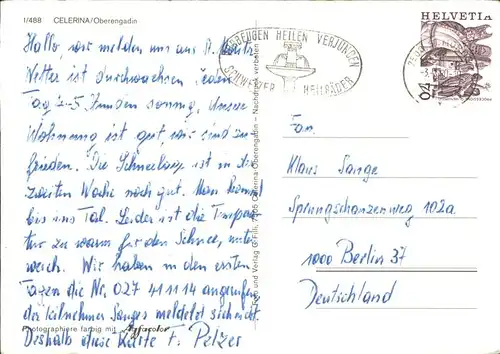 1/488 CELERINA/Oberengadin
Hallo, wir melden uns aus St. Moritz
Wetter ist durchwachsen jeden
Tag 2-5 Stunden sonnig. Unsere
Wohnung ist gut, wir sind zu-
frieden. Die Schneelage ist in die
zweiten Woche noch gut. Man kommt
bis ins Tal. Leider ist die Tempera-
tur zu warm für den Schnee,
weich. Wir haben in den ersten
Tagen die Nr. 027 411114 angerufen
der Teilnehmer Sanges meldet sich nicht.
Deshalb diese Karte F. Pelzer
Photographiere farbig mit Agfacolor
Foto und Verlag G. Filli, 7505 Celerina-Oberengadin – Nachdruck verboten
VORBEUGEN HEILEN VERJÜNGEN
SCHWEIZER HEILBÄDER
HELVETIA
Fam.
Klaus Sange
Sprungschanzenweg 102a
1000 Berlin 37
Deutschland